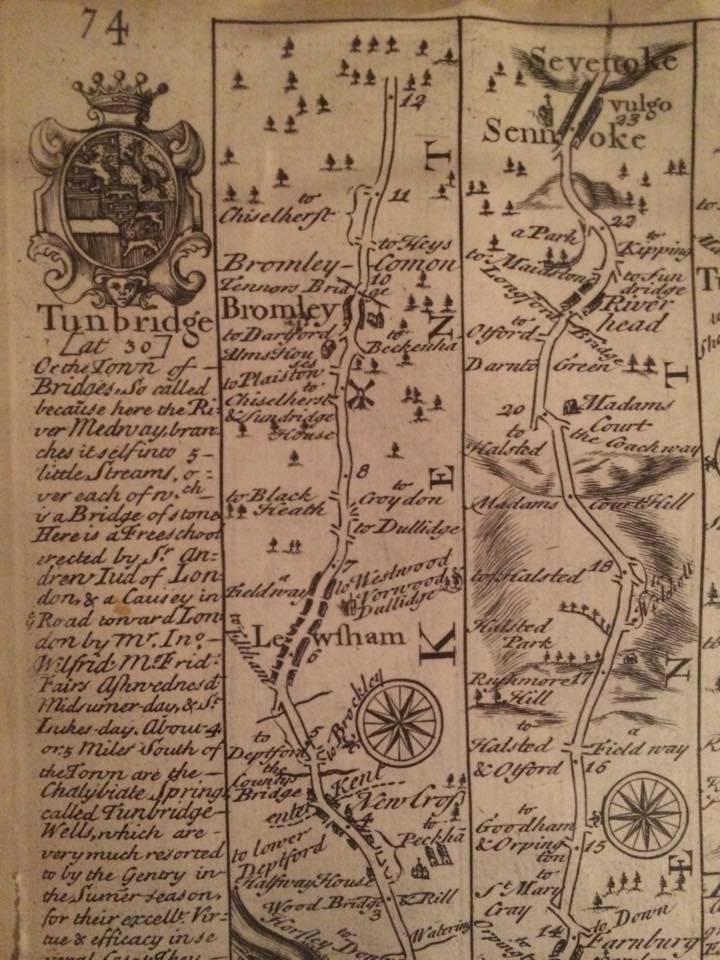 74
Tunbridge
[at 30]
Or the Town of
Bridges, So called
because here the Ri-
ver Medway, bran
ches it self into 5
little Streams, o=
ver each of wch
is a Bridge of stone
Here is a Freeschool
erected by Sr. An=
drew Iud of Lon=
don, & a Causey in
Road toward Lon
don by Mr. Ino
Wilfrid: Mt. Frid:
Fairs Ashwednesd
Midsumer-day, & St.
Lukes-day. About 4
or 5 Miles South of
the Town are the
Chalybiate Spring
called Tunbridge-
Wells, which are
very much resorted
to by the Gentry in
the Sumer season,
for their excellt. Vir=
tue & efficacy in se
12
11
to
Chiselherst
to Heys
Bromley Comon
10
Tennors Bridge
Bromley
to Dartford
Alms Hou
ses
to
Beckenha
to Plaistow
to
Chiselherst
& Sundridge
House
8
to Black
Heath
to
Croydon
to Dullidge
7
a
Fieldway
to Westwood
Norwood &
Dullidge
Lewsham
6
to Eltham
5
to Brockley
to
Deptford
the
County
Bridge
Kent
enter
New Cross
4
to lower
Deptford
to
Peckha
Halfway House
Wood Bridge
3
to Rill
to
Horsley Down
Watering
K E N T
Sevenoke
vulgo
23
Sennoke
22
a Park
to
Kipping
to Maidston
to Sun
dridge
Longford
Bridge
River
head
to
Otford
Darnto Green
20
Madams
Court
the Coach way
to
Halsted
Madams Court Hill
18
to Halsted
to
Halsted
Park
Rushmore 17
Hill
to
Halsted
& Otford
a
Field way
16
to
Goodham
& Orping
ton
15
to
St. Mary
Cray
to Down
14
Farnburg
Orping
E N T